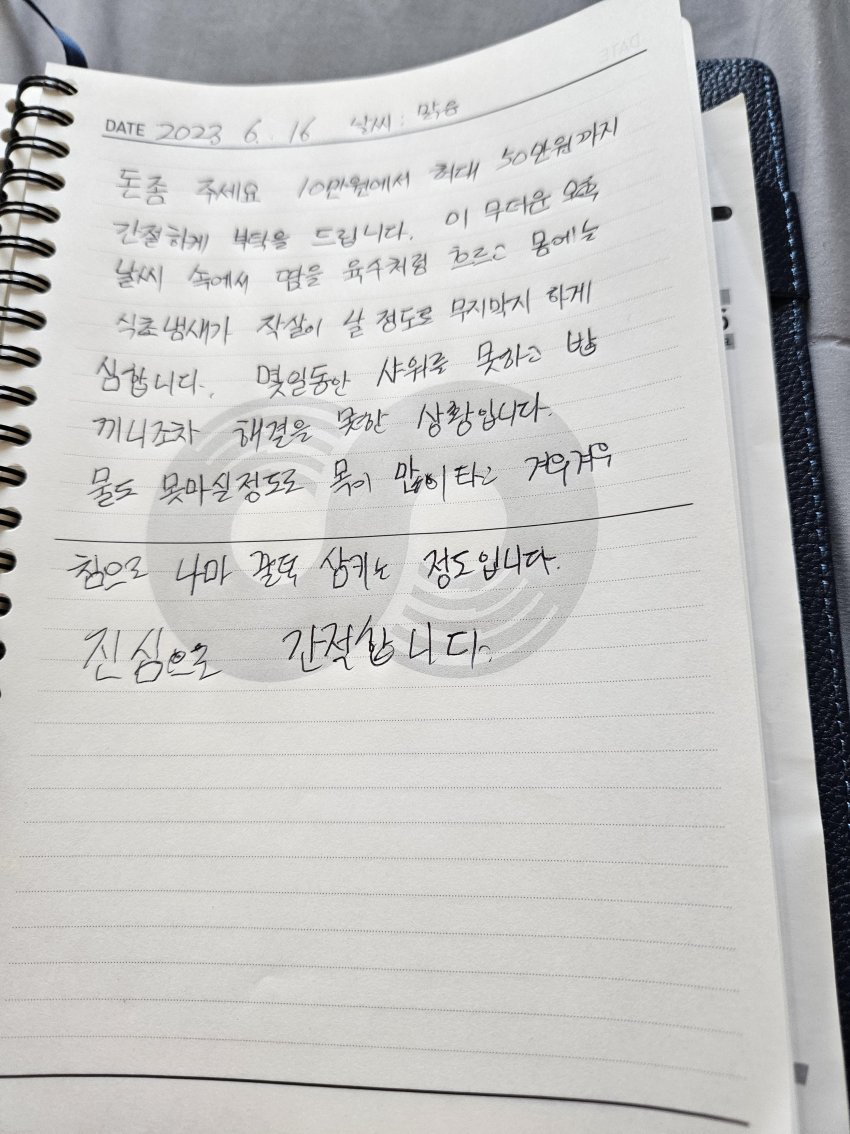 DATE 2023 6. 16 날씨 : 맑음
돈좀 주세요 10만원에서 최대 50만원까지
간절하게 부탁을 드립니다. 이 무더운 오후
날씨 속에서 땀을 육수처럼 흐르고 몸에는
식초냄새가 작살이 날 정도로 무지막지 하게
심합니다. 몇일동안 샤워를 못하고 밥
끼니조차 해결을 못한 상황입니다.
물도 못마실정도로 목이 많이 타고 겨우겨우
침으로 나마 꿀떡 삼키는 정도입니다.
진심으로 간절합니다.